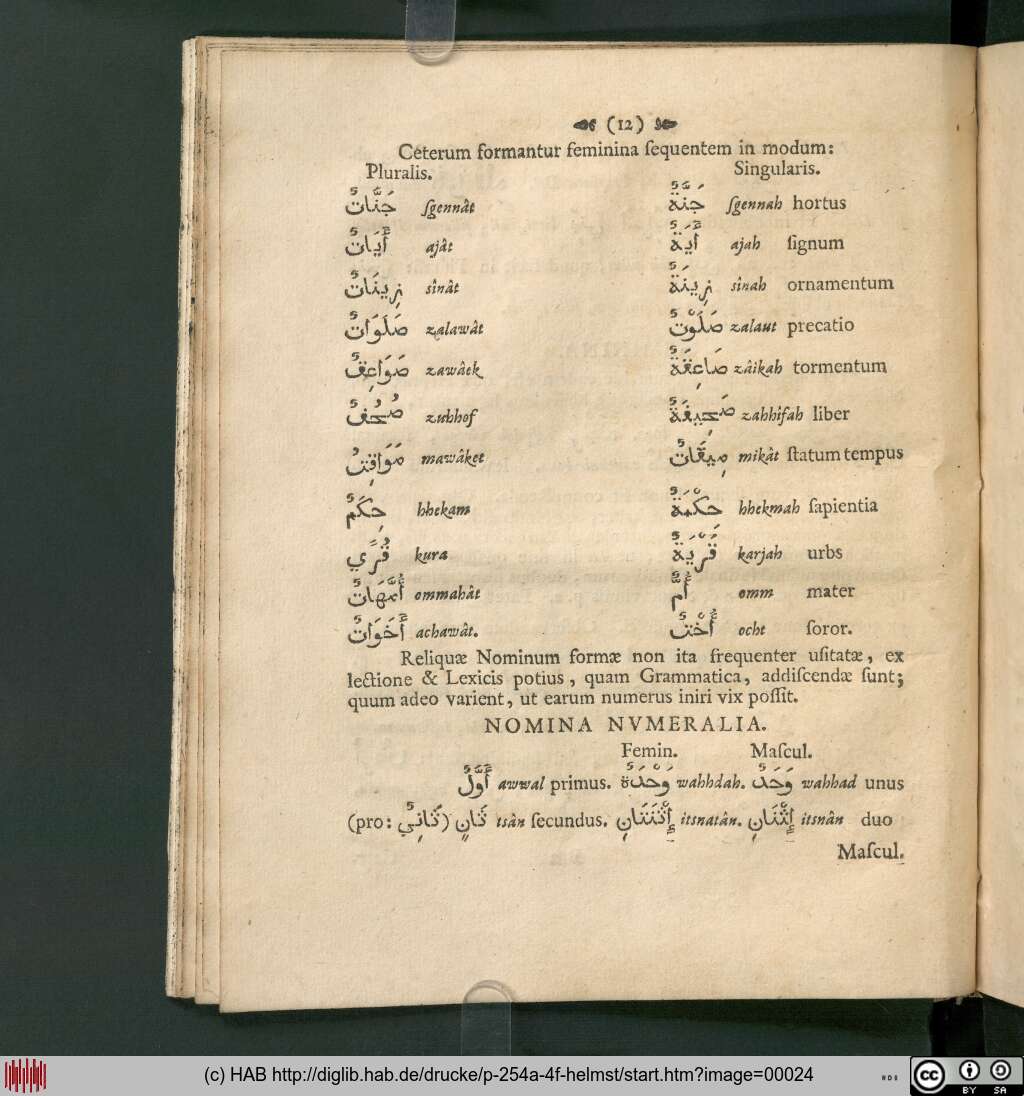 (12)
Ceterum formantur feminina ſequentem in modum:
Pluralis. Singularis.
جَنَّاتٌ ſgennât جَنَّةٌ ſgennah hortus
أَيَاتٌ ajât أَيَةٌ ajah ſignum
زِينَاتٌ sinât زِينَةٌ sînah ornamentum
صَلَوَاتٌ zalawât صَلَوْتٌ zalaut precatio
صَوَاعِقٌ zawâek صَاعِقَةٌ zâikah tormentum
صُحُفٌ zuhhof صَحِيفَةٌ zahhîfah liber
مَوَاقِتُ mawâket مِيقَاتٌ mikât ſtatum tempus
حِكَمٌ hhekam حِكْمَةٌ hhekmah ſapientia
قُرًي kura قَرْيَةٌ karjah urbs
أُمَّهَاتٌ ommahât أُمٌّ omm mater
أَخَوَاتٌ achawât. أُخْتٌ ocht ſoror.
Reliquæ Nominum formæ non ita frequenter uſitatæ, ex
lectione & Lexicis potius, quam Grammatica, addiſcendæ ſunt;
quum adeo varient, ut earum numerus iniri vix poſſit.
NOMINA NVMERALIA.
Femin. Maſcul.
أَوَّلٌ awwal primus. وَحْدَةٌ wahhdah. وَحَدٌ wahhad unus
(pro: ثَانِيٌ) ثَانٍ tsân ſecundus. إِثْنَتَانِ itsnatân. إِثْنَانِ itsnân duo
Maſcul.
(c) HAB http://diglib.hab.de/drucke/p-254a-4f-helmst/start.htm?image=00024
cc BY SA